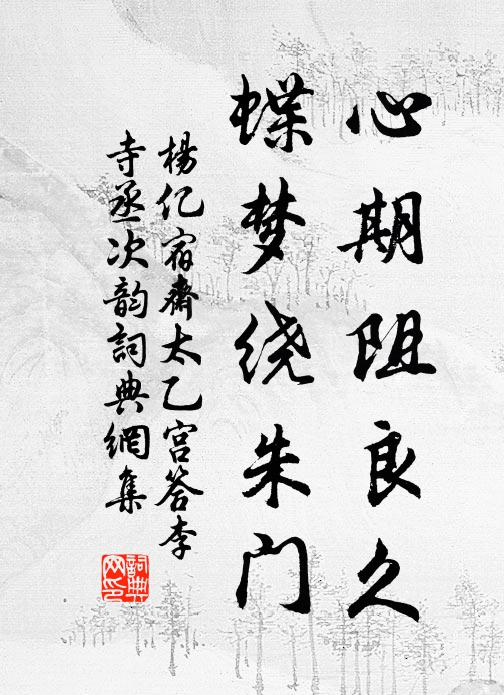 心期阻良久
蝶梦绕朱门
楊亿宿齋太乙宫答李
寺丞次韵詞典網集
詞典网印